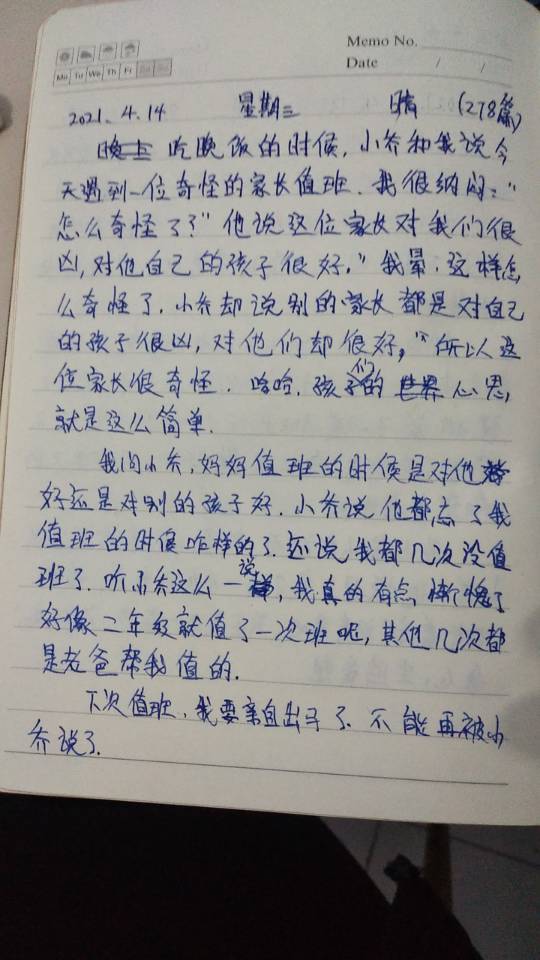 Memo No.
Mo Tu We Th Fr Sa Su
Date / /
2021.4.14 星期三 晴 (278篇)
晚上 吃晚饭的时候,小乔和我说今
天遇到一位奇怪的家长值班.我很纳闷:“
怎么奇怪了?”他说这位家长对我们很
凶,对他自己的孩子很好。”我晕.这样怎
么奇怪了.小乔却说别的家长都是对自己
的孩子很凶,对他们却很好,“所以这
位家长很奇怪.哈哈.孩子们的世界心思,
就是这么简单.
我问小乔,妈妈值班的时候是对他
好还是对别的孩子好.小乔说他都忘了我
值班的时候咋样的了.还说我都几次没值
班了.听小乔这么一说,我真的有点惭愧了
好像二年级就值了一次班呢,其他几次都
是老爸帮我值的.
下次值班,我要亲自出马了.不能再被小
乔说了.